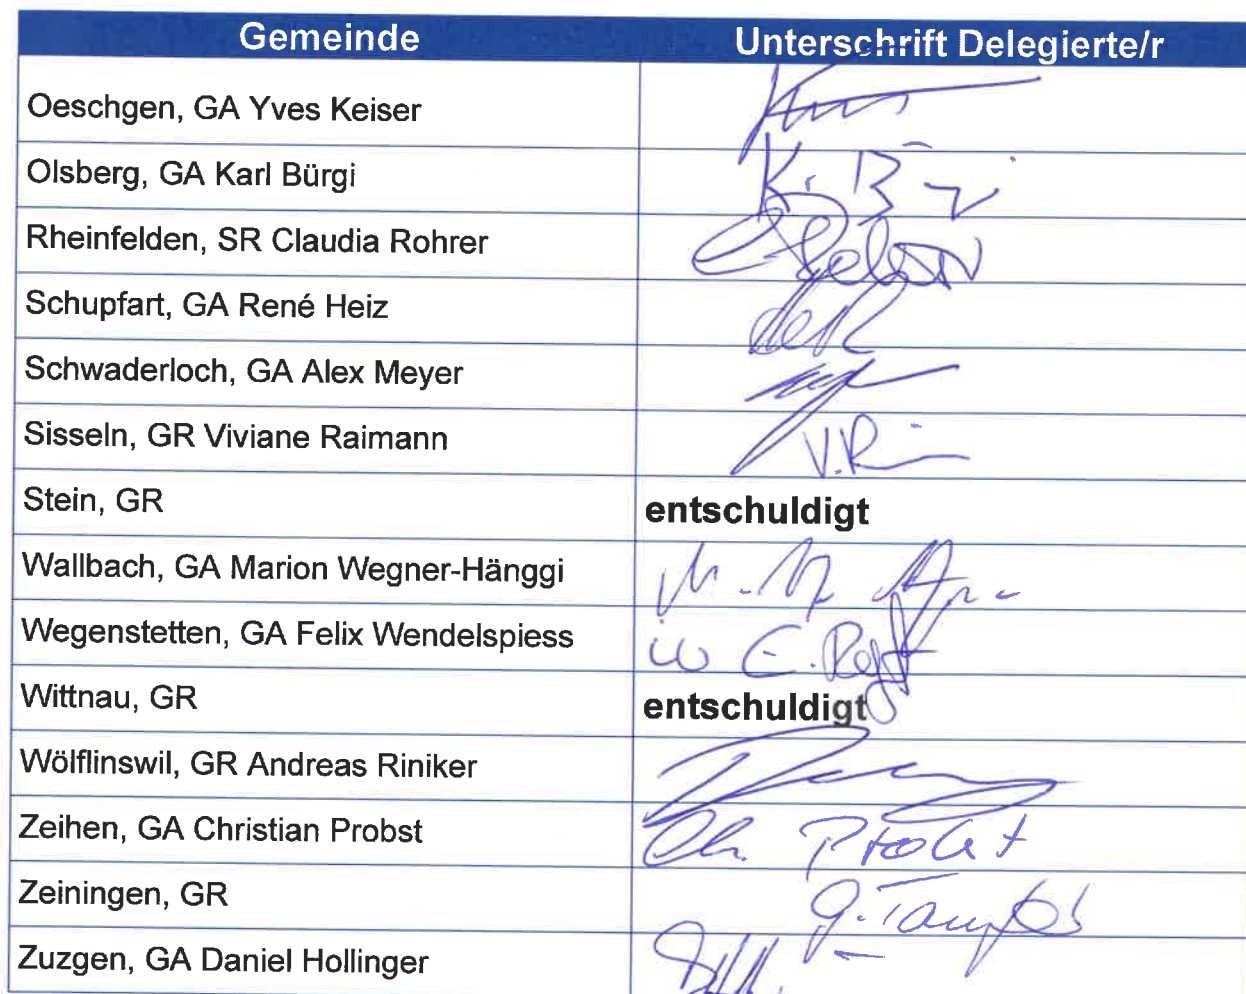 Gemeinde Unterschrift Delegierte/r
Oeschgen, GA Yves Keiser
Olsberg, GA Karl Bürgi K. Bürgi
Rheinfelden, SR Claudia Rohrer
Schupfart, GA René Heiz
Schwaderloch, GA Alex Meyer
Sisseln, GR Viviane Raimann V.R
Stein, GR entschuldigt
Wallbach, GA Marion Wegner-Hänggi
Wegenstetten, GA Felix Wendelspiess
Wittnau, GR entschuldigt
Wölflinswil, GR Andreas Riniker
Zeihen, GA Christian Probst Ch. Probst
Zeiningen, GR
Zuzgen, GA Daniel Hollinger